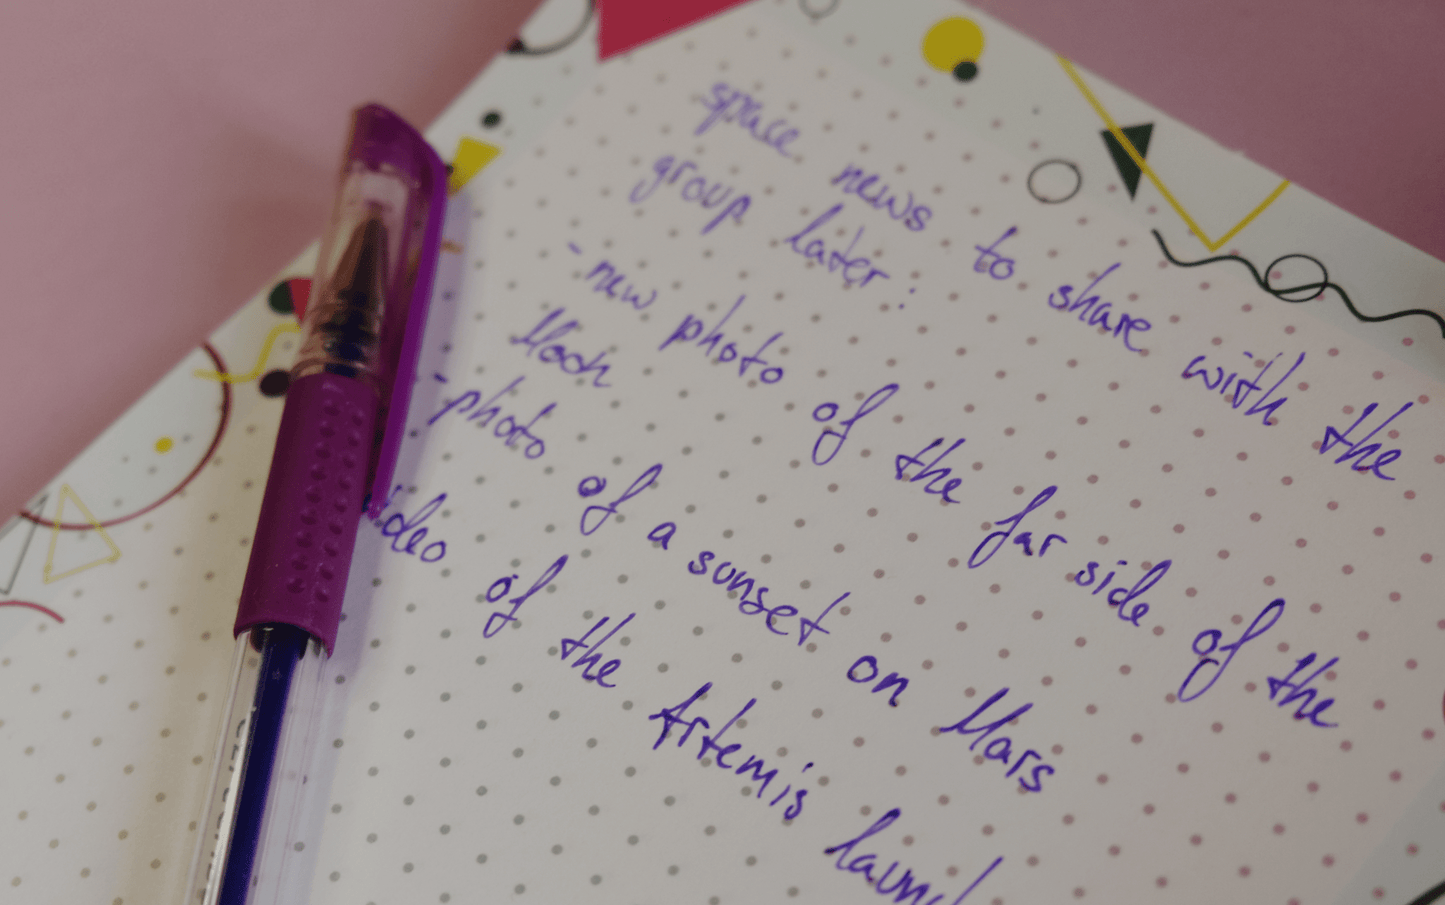 space news to share with the
group later:
- new photo of the far side of the
Moon
- photo of a sunset on Mars
video of the Artemis launch